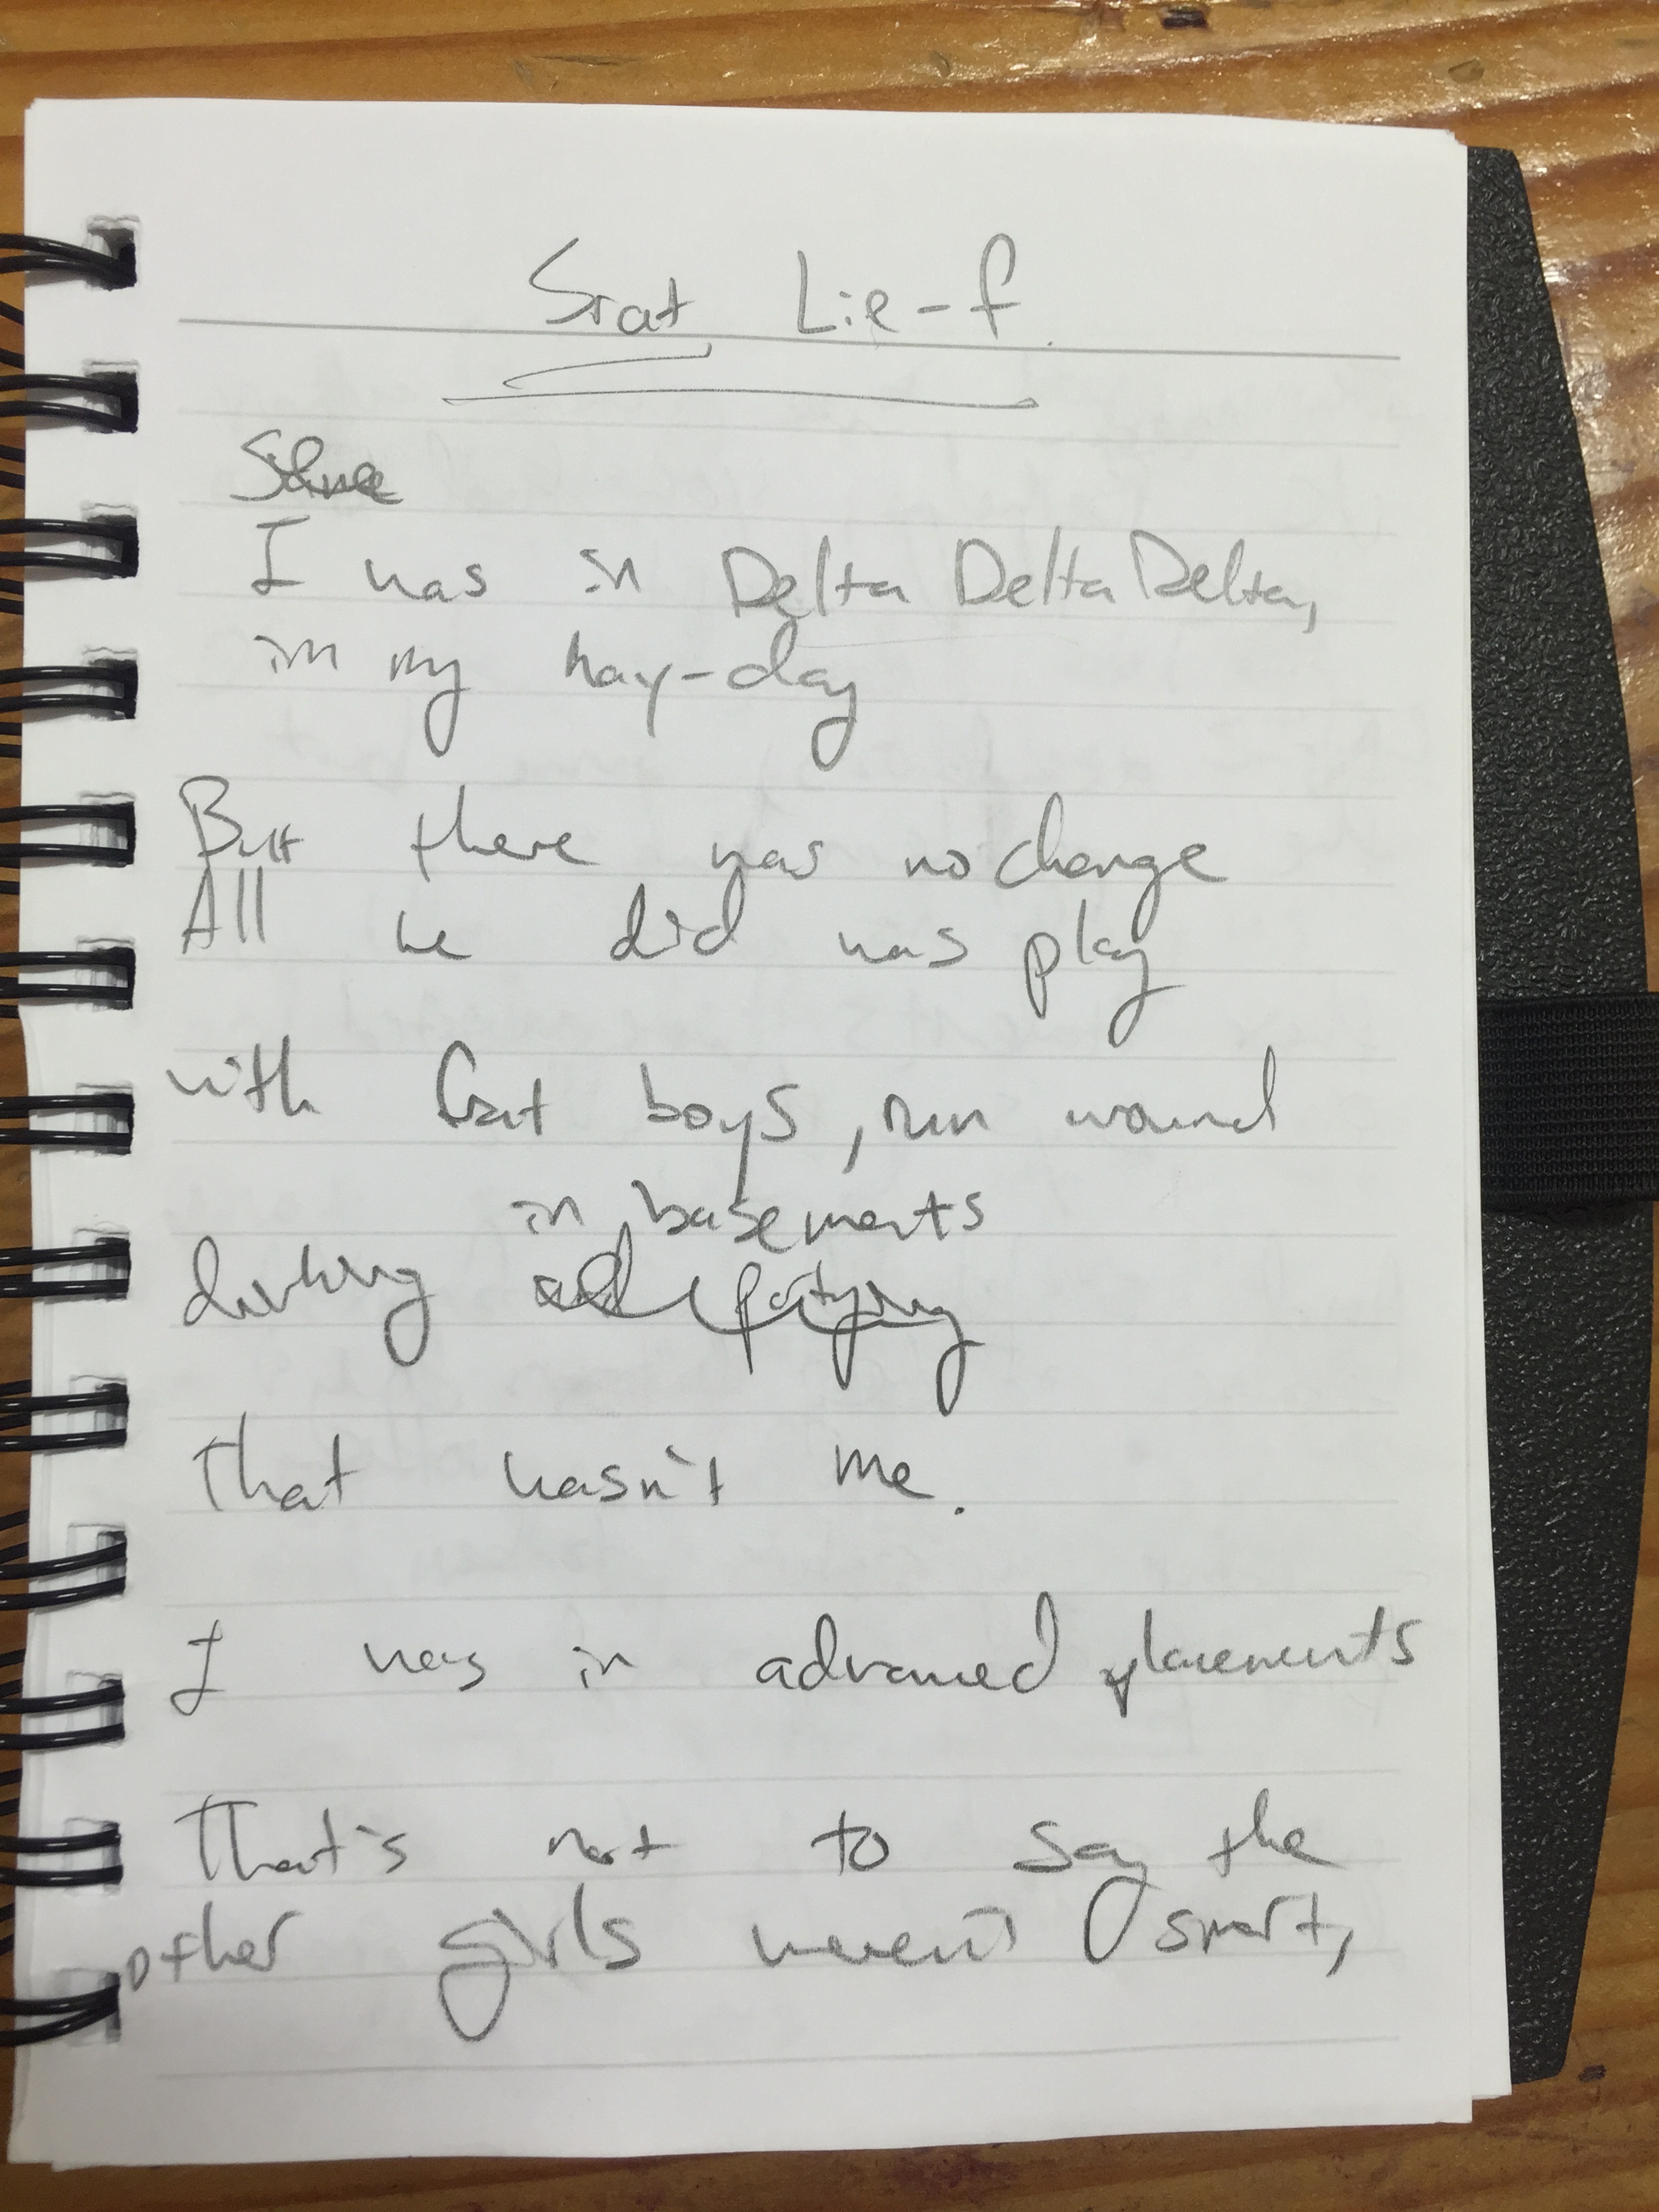 Srat Lie-f
I was in Delta Delta Delta,
in my hay-day
But there was no change
All we did was play
with frat boys, run around
in basements
drinking and partying
That wasn't me.
I was in advanced placements
That's not to say the
other girls weren't smart,